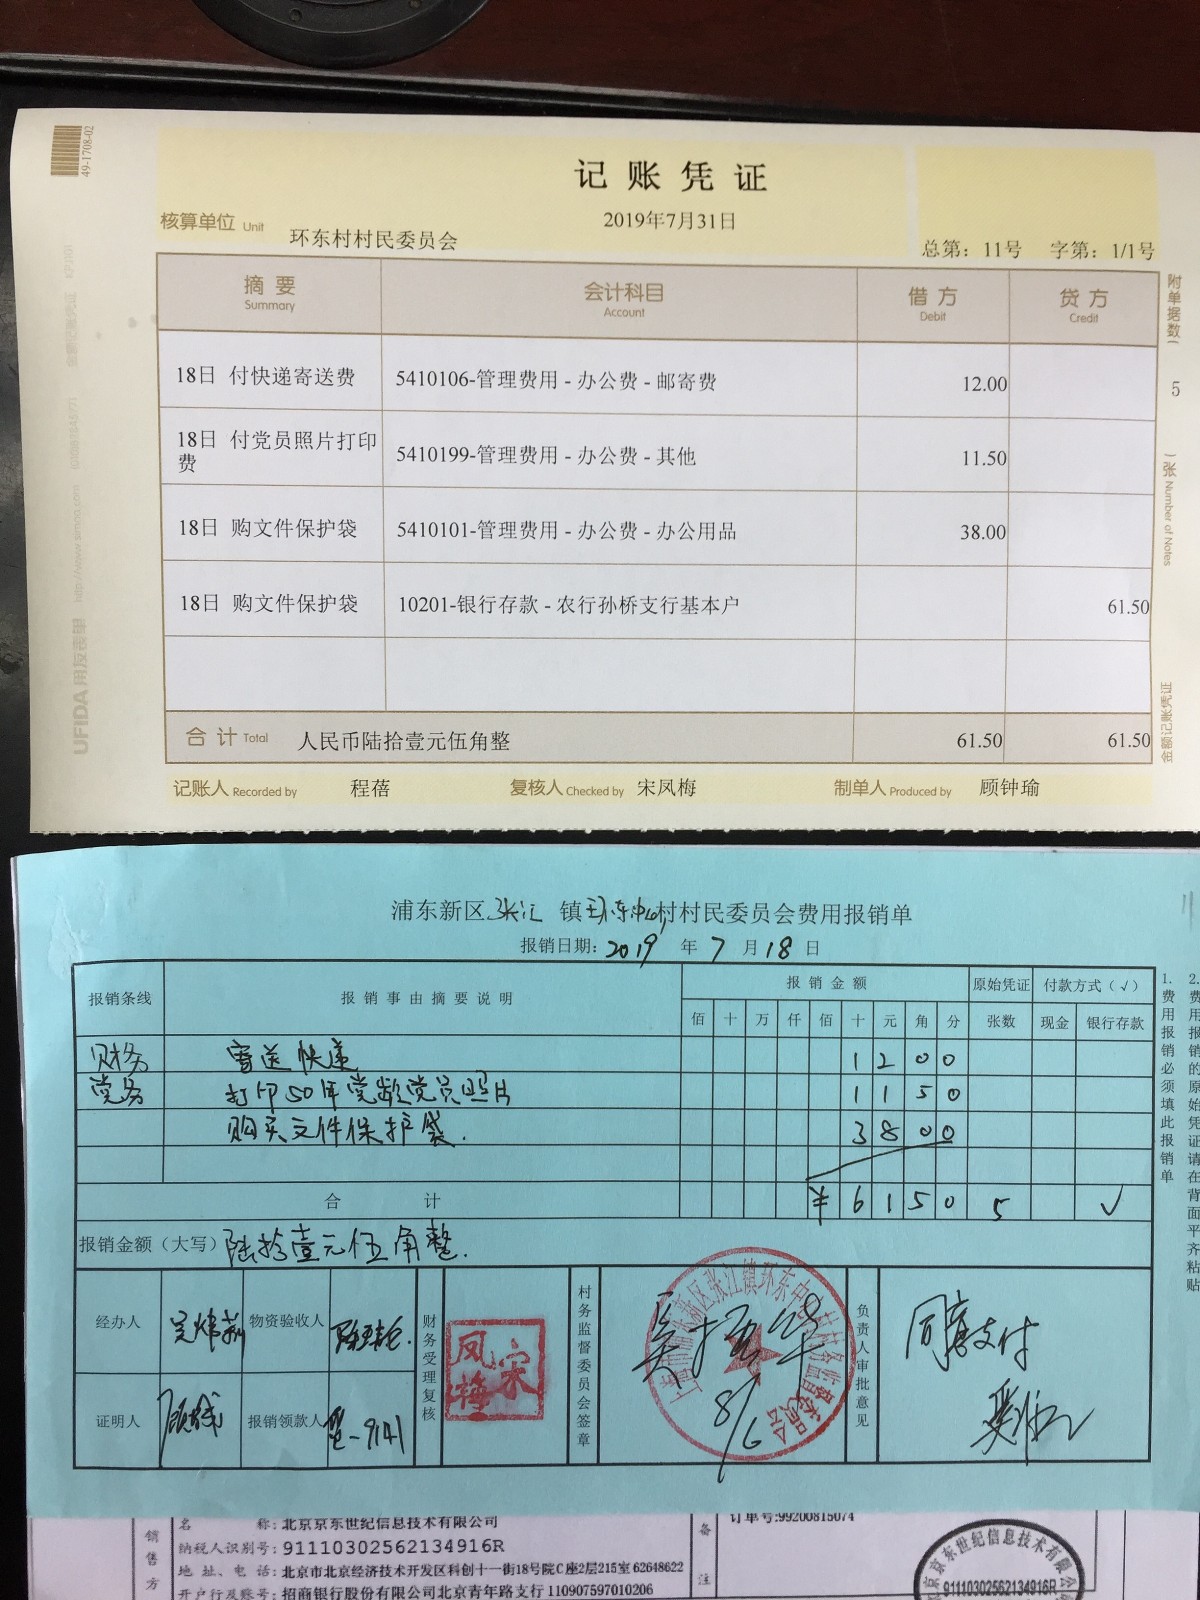 49-1708-02
记账凭证
2019年7月31日
核算单位 Unit 环东村村民委员会
总第：11号 字第：1/1号
摘要 会计科目 借方 贷方
Summary Account Debit Credit
18日 付快递寄送费 5410106-管理费用 - 办公费 - 邮寄费 12.00
18日 付党员照片打印费 5410199-管理费用 - 办公费 - 其他 11.50
18日 购文件保护袋 5410101-管理费用 - 办公费 - 办公用品 38.00
18日 购文件保护袋 10201-银行存款 - 农行孙桥支行基本户 61.50
合计 Total 人民币陆拾壹元伍角整 61.50 61.50
记账人 Recorded by 程蓓 复核人 Checked by 宋凤梅 制单人 Produced by 顾钟瑜
附单据数( 5 张) Number of Notes
金额记账凭证
UFIDA 用友表单
浦东新区张江镇环东中心村村民委员会费用报销单
报销日期：2019年7月18日
报销条线 报销事由摘要说明 报销金额 原始凭证 付款方式（√）
佰 十 万 仟 佰 十 元 角 分 张数 现金 银行存款
财务 寄送快递 1 2 0 0
党务 打印50年党龄党员照片 1 1 5 0
购买文件保护袋. 3 8 0 0
合计 ¥ 6 1 5 0 5 √
报销金额（大写）陆拾壹元伍角整.
经办人 物资验收人
证明人 报销领款人
财务受理复核
宋凤梅
村务监督委员会签章
8/6
负责人审批意见
同意支付
1.费用报销必须填此报销单
2.费用报销的原始凭证请在背面平齐粘贴
销售方
名称：北京京东世纪信息技术有限公司
纳税人识别号：91110302562134916R
地址、电话：北京市北京经济技术开发区科创十一街18号院C座2层215室 62648622
开户行及账号：招商银行股份有限公司北京青年路支行 110907597010206
备注
订单号:99200815074
北京京东世纪信息技术有限公司
91110302562134916R